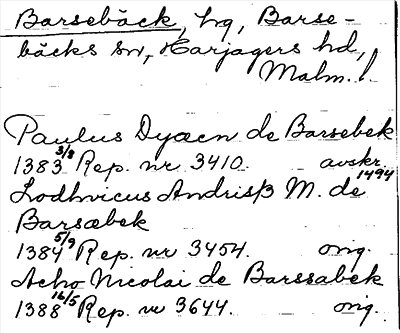 Barsebäck, hg, Barse-
bäcks sn, Harjagers hd,
Malm. l.
Paulus Dyæcn de Barsebek
1383 3/8 Rep. nr 3410. avskr. 1494
Lodhvicus Andrisß M. de
Barsæbek
1384 5/9 Rep. nr 3454. orig.
Acho Nicolai de Barssabek
1388 16/5 Rep. nr 3644. orig.